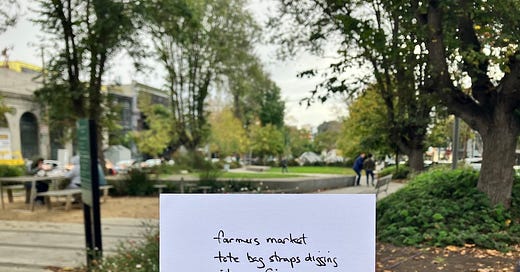 farmers market
tote bag straps digging